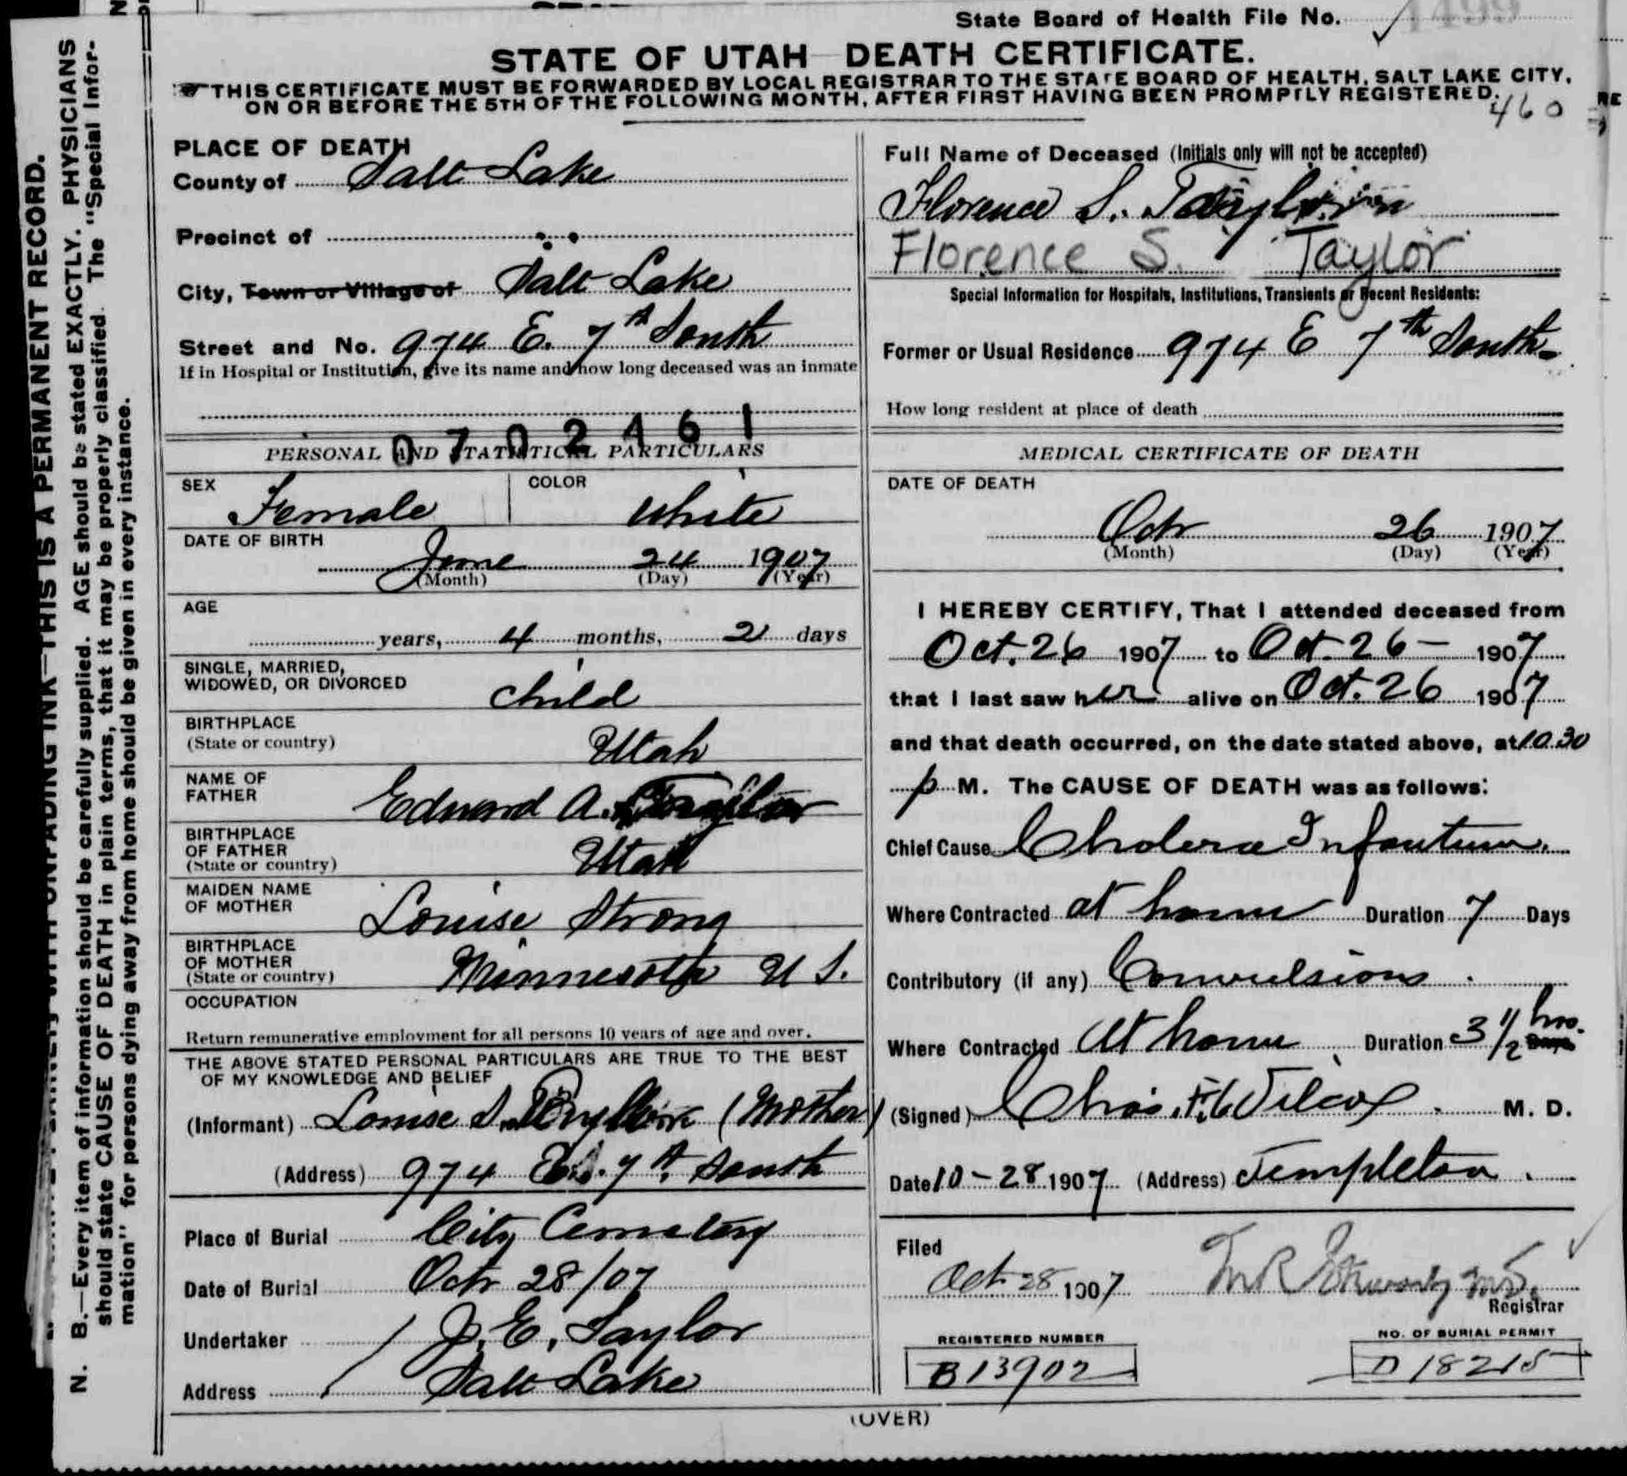 State Board of Health File No. 1499
STATE OF UTAH DEATH CERTIFICATE.
THIS CERTIFICATE MUST BE FORWARDED BY LOCAL REGISTRAR TO THE STATE BOARD OF HEALTH, SALT LAKE CITY,
ON OR BEFORE THE 5TH OF THE FOLLOWING MONTH, AFTER FIRST HAVING BEEN PROMPTLY REGISTERED.
460
PLACE OF DEATH
County of Salt Lake
Precinct of
City, Town or Village of Salt Lake
Street and No. 974 E. 7th South
If in Hospital or Institution, give its name and how long deceased was an inmate
0702461
PERSONAL AND STATISTICAL PARTICULARS
SEX Female COLOR White
DATE OF BIRTH
June 24 1907
(Month) (Day) (Year)
AGE
years, 4 months, 2 days
SINGLE, MARRIED,
WIDOWED, OR DIVORCED child
BIRTHPLACE
(State or country) Utah
NAME OF
FATHER Edward A. Taylor
BIRTHPLACE
OF FATHER
(State or country) Utah
MAIDEN NAME
OF MOTHER Louise Strong
BIRTHPLACE
OF MOTHER
(State or country) Minnesota U S.
OCCUPATION
Return remunerative employment for all persons 10 years of age and over.
THE ABOVE STATED PERSONAL PARTICULARS ARE TRUE TO THE BEST
OF MY KNOWLEDGE AND BELIEF
(Informant) Louise S. (Mother)
(Address) 974 E. 7th South
Place of Burial City Cemetery
Date of Burial Oct 28/07
Undertaker J. E. Taylor
Address Salt Lake
Full Name of Deceased (Initials only will not be accepted)
Florence S. Taylor
Florence S. Taylor
Special Information for Hospitals, Institutions, Transients or Recent Residents:
Former or Usual Residence 974 E 7th South
How long resident at place of death
MEDICAL CERTIFICATE OF DEATH
DATE OF DEATH
Oct 26 1907
(Month) (Day) (Year)
I HEREBY CERTIFY, That I attended deceased from
Oct. 26 1907 to Oct. 26 - 1907
that I last saw her alive on Oct. 26 1907
and that death occurred, on the date stated above, at 10.30
p M. The CAUSE OF DEATH was as follows:
Chief Cause Cholera Infantum.
Where Contracted at home Duration 7 Days
Contributory (if any) Convulsions.
Where Contracted At home Duration 3 1/2 hrs. Days
(Signed) Chas. F. Wilcox M. D.
Date 10-28 1907 (Address) Templeton.
Filed
Oct 28 1907
Registrar
REGISTERED NUMBER
B13902
NO. OF BURIAL PERMIT
D 18215
(OVER)
THIS IS A PERMANENT RECORD.
N. B.—Every item of information should be carefully supplied. AGE should be stated EXACTLY. PHYSICIANS
should state CAUSE OF DEATH in plain terms, that it may be properly classified. The "Special Infor-
mation" for persons dying away from home should be given in every instance.